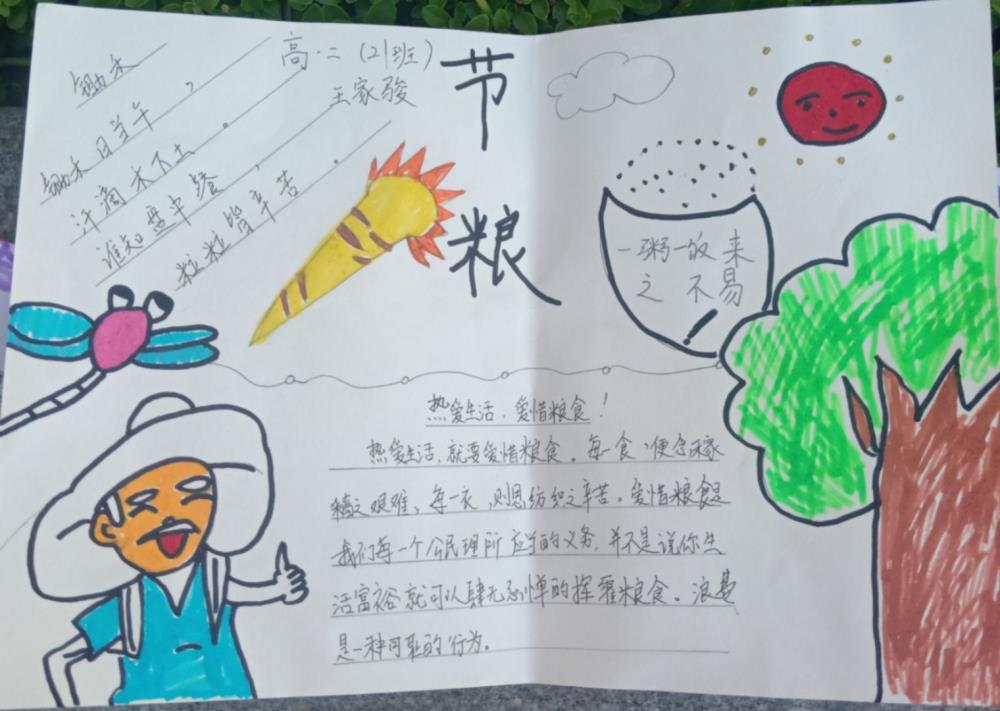 高·二（21班）
王家骏
节
粮
锄禾
锄禾日当午，
汗滴禾下土。
谁知盘中餐，
粒粒皆辛苦。
一粥一饭来
之不易
！
热爱生活，爱惜粮食！
热爱生活，就要爱惜粮食。每一食，便念稼
穑之艰难，每一衣，则思纺织之辛苦。爱惜粮食是
我们每一个公民理所应当的义务，并不是说你生
活富裕就可以肆无忌惮的挥霍粮食。浪费
是一种可耻的行为。